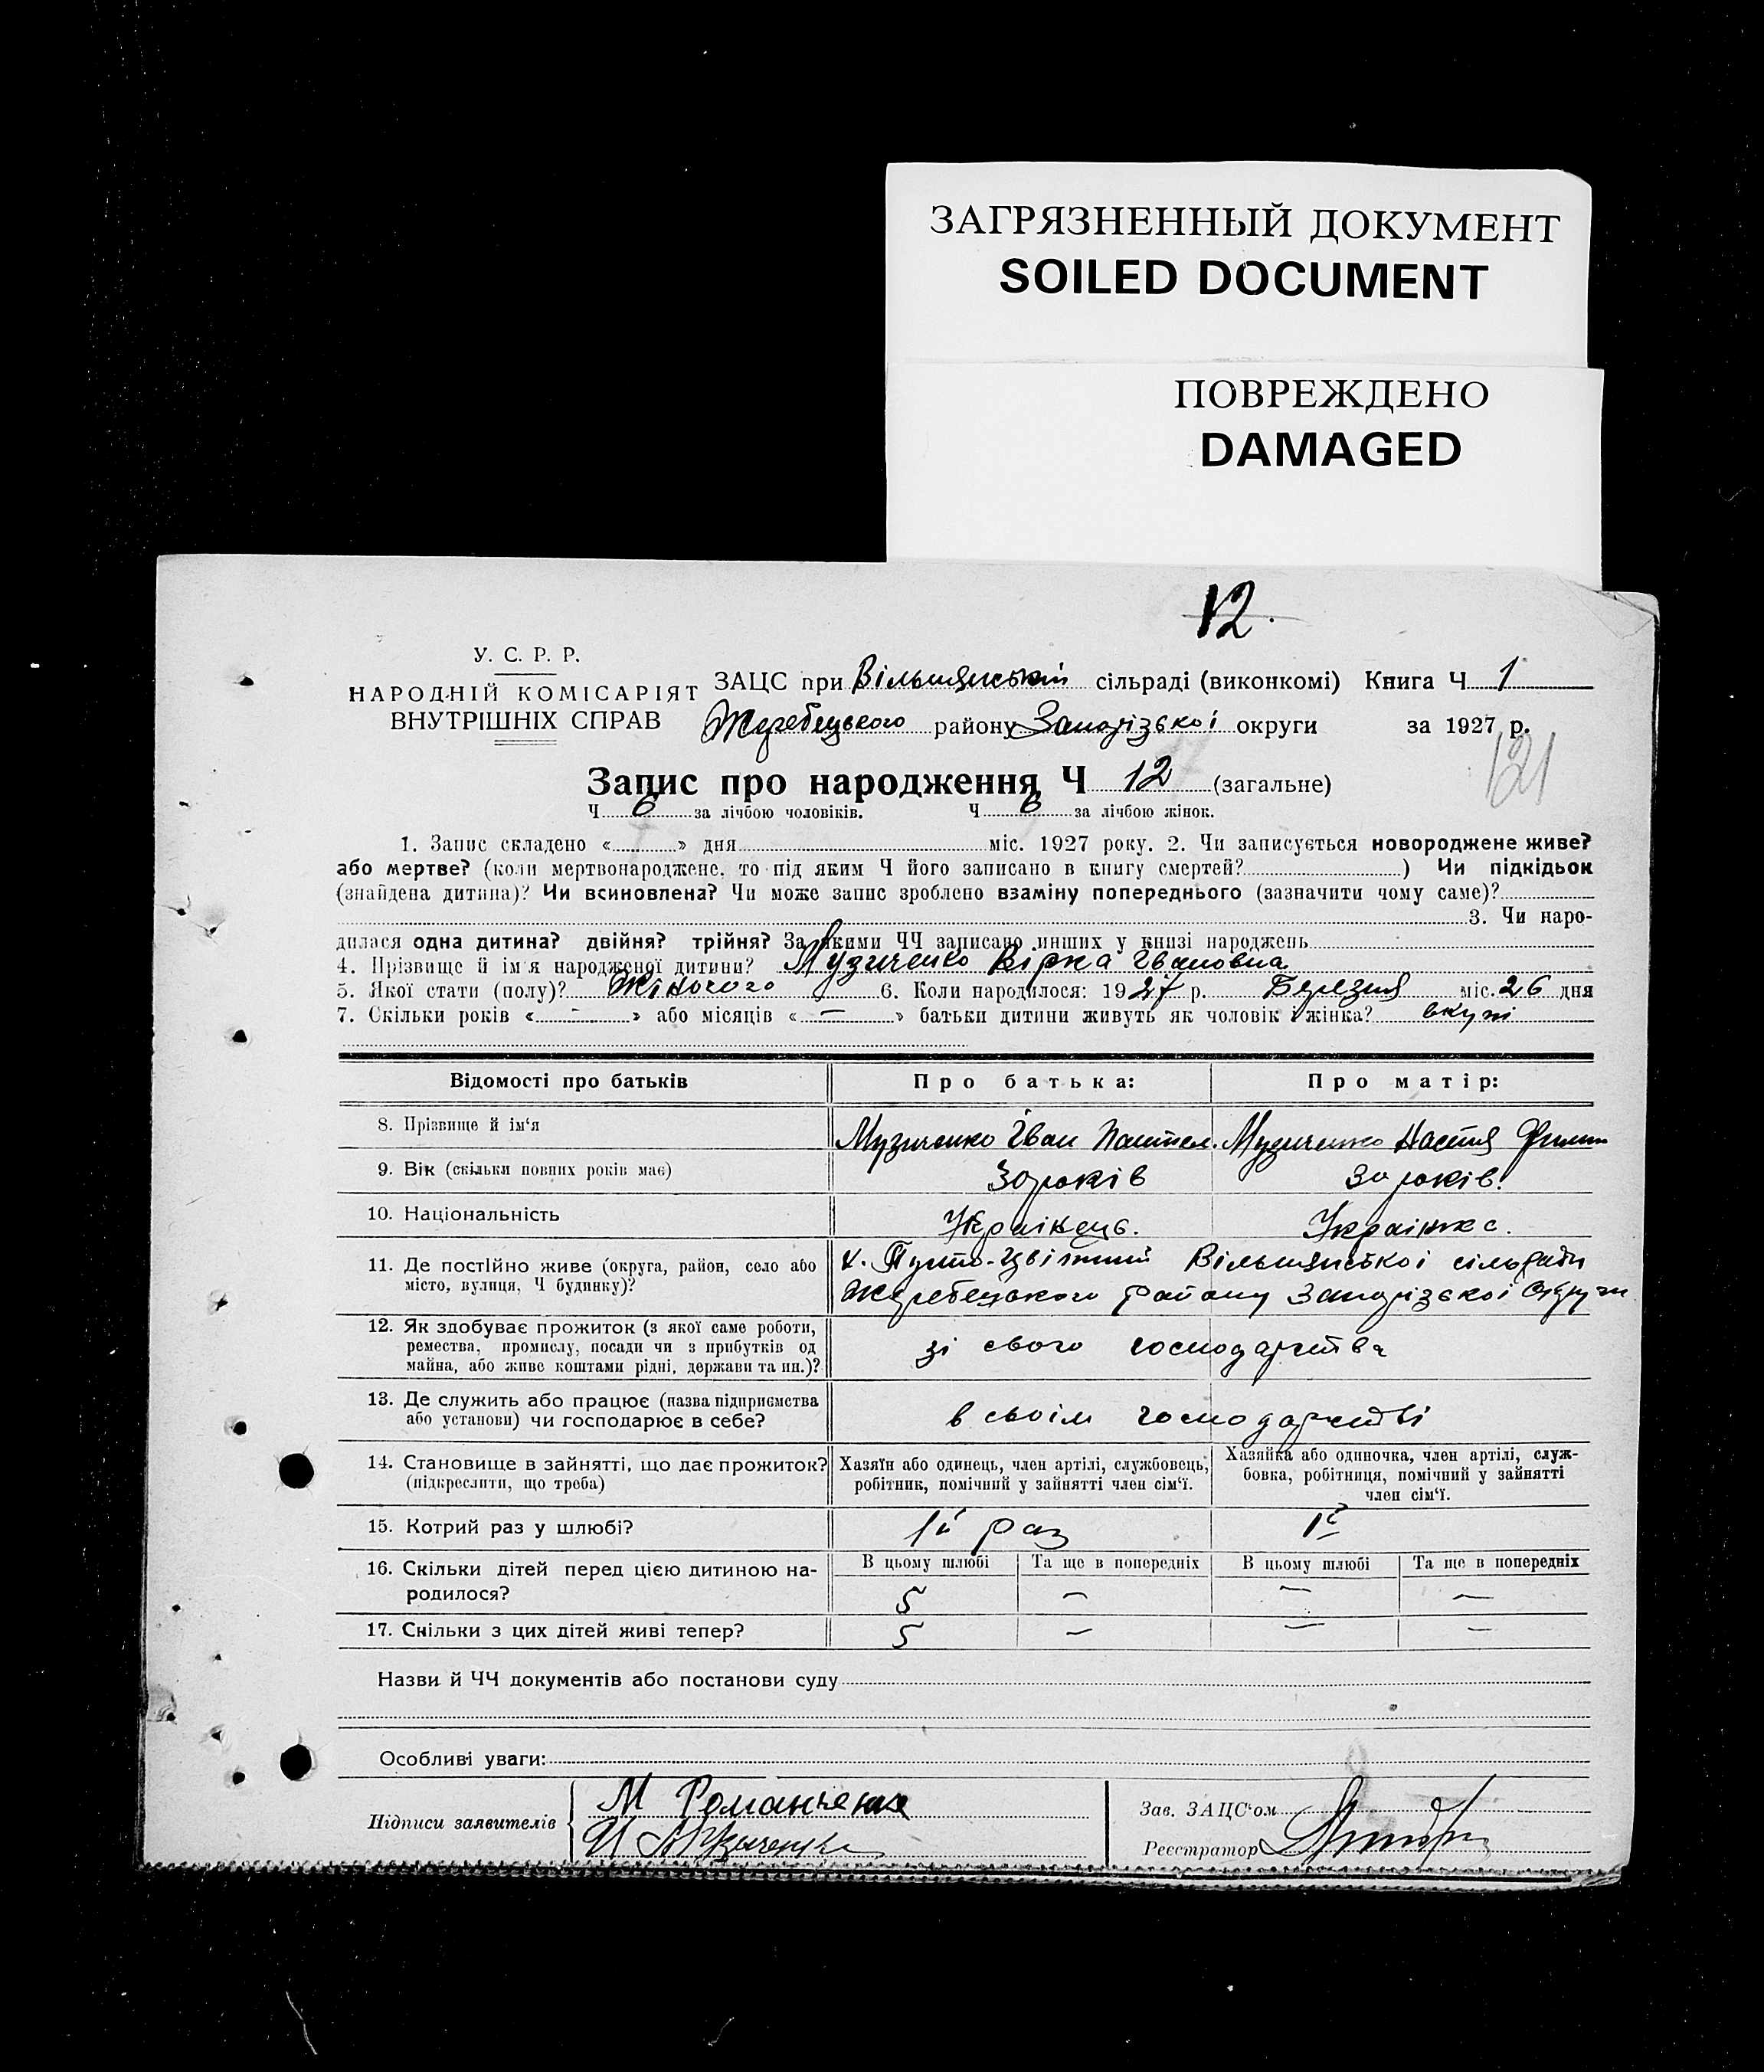 ЗАГРЯЗНЕННЫЙ ДОКУМЕНТ
SOILED DOCUMENT
ПОВРЕЖДЕНО
DAMAGED
12.
У. С. Р. Р.
НАРОДНІЙ КОМІСАРІЯТ
ВНУТРІШНІХ СПРАВ
ЗАЦС при Вільшанській сільраді (виконкомі) Книга Ч 1
Жеребецького району Запорізької округи за 1927 р.
121
Запис про народження Ч 12 (загальне)
Ч 6 за лічбою чоловіків. Ч 6 за лічбою жінок.
1. Запис складено « » дня міс. 1927 року. 2. Чи записується новороджене живе?
або мертве? (коли мертвонароджене, то під яким Ч його записано в книгу смертей? ) Чи підкідьок
(знайдена дитина)? Чи всиновлена? Чи може запис зроблено взаміну попереднього (зазначити чому саме)?
3. Чи наро-
дилася одна дитина? двійня? трійня? За якими ЧЧ записано инших у книзі народжень
4. Прізвище й ім'я народженої дитини? Музиченко Вірка Івановна
5. Якої стати (полу)? Жіночого 6. Коли народилося: 1927 р. Березня міс. 26 дня
7. Скільки років « - » або місяців « — » батьки дитини живуть як чоловік і жінка? вкупі
Відомості про батьків
Про батька:
Про матір:
8. Прізвище й ім'я
Музиченко Іван Пантел.
Музиченко Настя Филип
9. Вік (скільки повних років має)
30 років
30 років.
10. Національність
Українець.
Українка.
11. Де постійно живе (округа, район, село або
місто, вулиця, Ч будинку)?
Вільшанської сільради
Жеребецького району Запорізької округи
12. Як здобуває прожиток (з якої саме роботи,
ремества, промислу, посади чи з прибутків од
майна, або живе коштами рідні, держави та ин.)?
зі свого господарства
13. Де служить або працює (назва підприємства
або установи) чи господарює в себе?
в своїм господарстві
14. Становище в зайнятті, що дає прожиток?
(підкреслити, що треба)
Хазяїн або одинець, член артілі, службовець,
робітник, помічний у зайнятті член сім'ї.
Хазяйка або одиночка, член артілі, служ-
бовка, робітниця, помічний у зайнятті
член сім'ї.
15. Котрий раз у шлюбі?
1й раз
1й
16. Скільки дітей перед цією дитиною на-
родилося?
В цьому шлюбі
Та ще в попередніх
В цьому шлюбі
Та ще в попередніх
5 — — —
17. Скільки з цих дітей живі тепер?
5 — — —
Назви й ЧЧ документів або постанови суду
Особливі уваги:
Підписи заявителів
М Романченко
И Музыченко
Зав. ЗАЦС'ом
Реєстратор